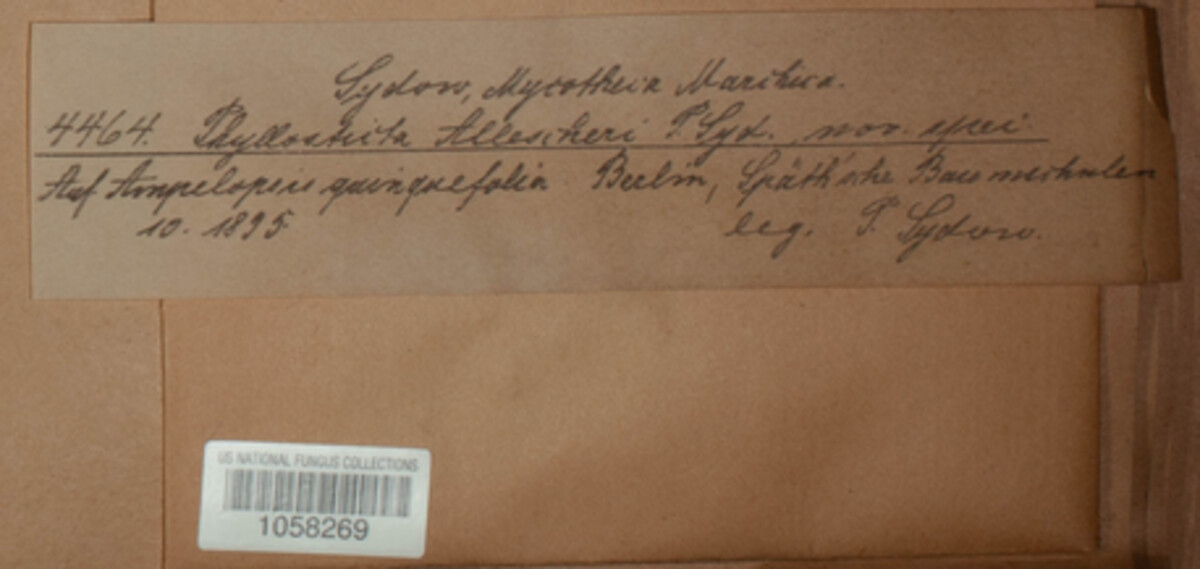 Sydow, Mycotheca Marchica.
4464. Phyllosticta Allescheri P. Syd. nov. spec.
Auf Ampelopsis quinquefolia Berlin, Späth'sche Baumschulen
10. 1895 leg. P. Sydow.
US NATIONAL FUNGUS COLLECTIONS
1058269